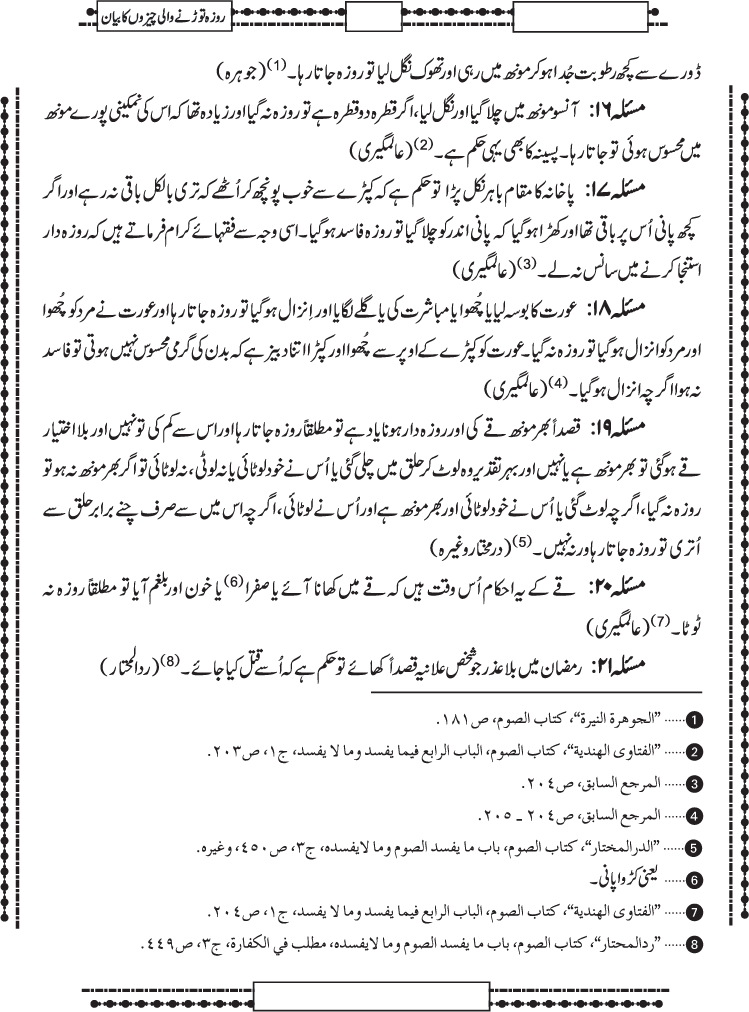 روزہ توڑنے والی چیزوں کا بیان
ڈورے سے کچھ رطوبت جُدا ہو کر مونھ میں رہی اور تھوک نگل لیا تو روزہ جاتا رہا۔(1) (جوہرہ)
مسئلہ ۱۶: آنسو مونھ میں چلا گیا اور نگل لیا، اگر قطرہ دو قطرہ ہے تو روزہ نہ گیا اور زیادہ تھا کہ اس کی نمکینی پورے مونھ
میں محسوس ہوئی تو جاتا رہا۔ پسینہ کا بھی یہی حکم ہے۔(2) (عالمگیری)
مسئلہ ۱۷: پاخانہ کا مقام باہر نکل پڑا تو حکم ہے کہ کپڑے سے خوب پونچھ کر اُٹھے کہ تری بالکل باقی نہ رہے اور اگر
کچھ پانی اُس پر باقی تھا اور کھڑا ہو گیا کہ پانی اندر کو چلا گیا تو روزہ فاسد ہو گیا۔ اسی وجہ سے فقہائے کرام فرماتے ہیں کہ روزہ دار
استنجا کرنے میں سانس نہ لے۔(3) (عالمگیری)
مسئلہ ۱۸: عورت کا بوسہ لیا یا چُھوا یا مباشرت کی یا گلے لگایا اور اِنزال ہو گیا تو روزہ جاتا رہا اور عورت نے مرد کو چُھوا
اور مرد کو انزال ہو گیا تو روزہ نہ گیا۔ عورت کو کپڑے کے اوپر سے چُھوا اور کپڑا اتنا دبیز ہے کہ بدن کی گرمی محسوس نہیں ہوتی تو فاسد
نہ ہوا اگرچہ انزال ہو گیا۔(4) (عالمگیری)
مسئلہ ۱۹: قصداً بھر مونھ قے کی اور روزہ دار ہونا یاد ہے تو مطلقاً روزہ جاتا رہا اور اس سے کم کی تو نہیں اور بلا اختیار
قے ہو گئی تو بھر مونھ ہے یا نہیں اور بہر تقدیر وہ لوٹ کر حلق میں چلی گئی یا اُس نے خود لوٹائی یا نہ لوٹی، نہ لوٹائی تو اگر بھر مونھ نہ ہو تو
روزہ نہ گیا، اگرچہ لوٹ گئی یا اُس نے خود لوٹائی اور بھر مونھ ہے اور اُس نے لوٹائی، اگرچہ اس میں سے صرف چنے برابر حلق سے
اُتری تو روزہ جاتا رہا ورنہ نہیں۔(5) (درمختار وغیرہ)
مسئلہ ۲۰: قے کے یہ احکام اُس وقت ہیں کہ قے میں کھانا آئے یا صفرا(6) یا خون اور بلغم آیا تو مطلقاً روزہ نہ
ٹوٹا۔(7) (عالمگیری)
مسئلہ ۲۱: رمضان میں بلا عذر جو شخص علانیہ قصداً کھائے تو حکم ہے کہ اُسے قتل کیا جائے۔(8) (ردالمحتار)
1 ...... ”الجوهرة النيرة“، كتاب الصوم، ص١٨١.
2 ...... ”الفتاوى الهندية“، كتاب الصوم، الباب الرابع فيما يفسد وما لا يفسد، ج١، ص٢٠٣.
3 ...... المرجع السابق، ص٢٠٤.
4 ...... المرجع السابق، ص٢٠٤ ـ ٢٠٥.
5 ...... ”الدرالمختار“، كتاب الصوم، باب ما يفسد الصوم وما لايفسده، ج٣، ص٤٥٠، وغيره.
6 ...... یعنی کڑوا پانی۔
7 ...... ”الفتاوى الهندية“، كتاب الصوم، الباب الرابع فيما يفسد وما لا يفسد، ج١، ص٢٠٤.
8 ...... ”ردالمحتار“، كتاب الصوم، باب ما يفسد الصوم وما لايفسده، مطلب في الكفارة، ج٣، ص٤٤٩.